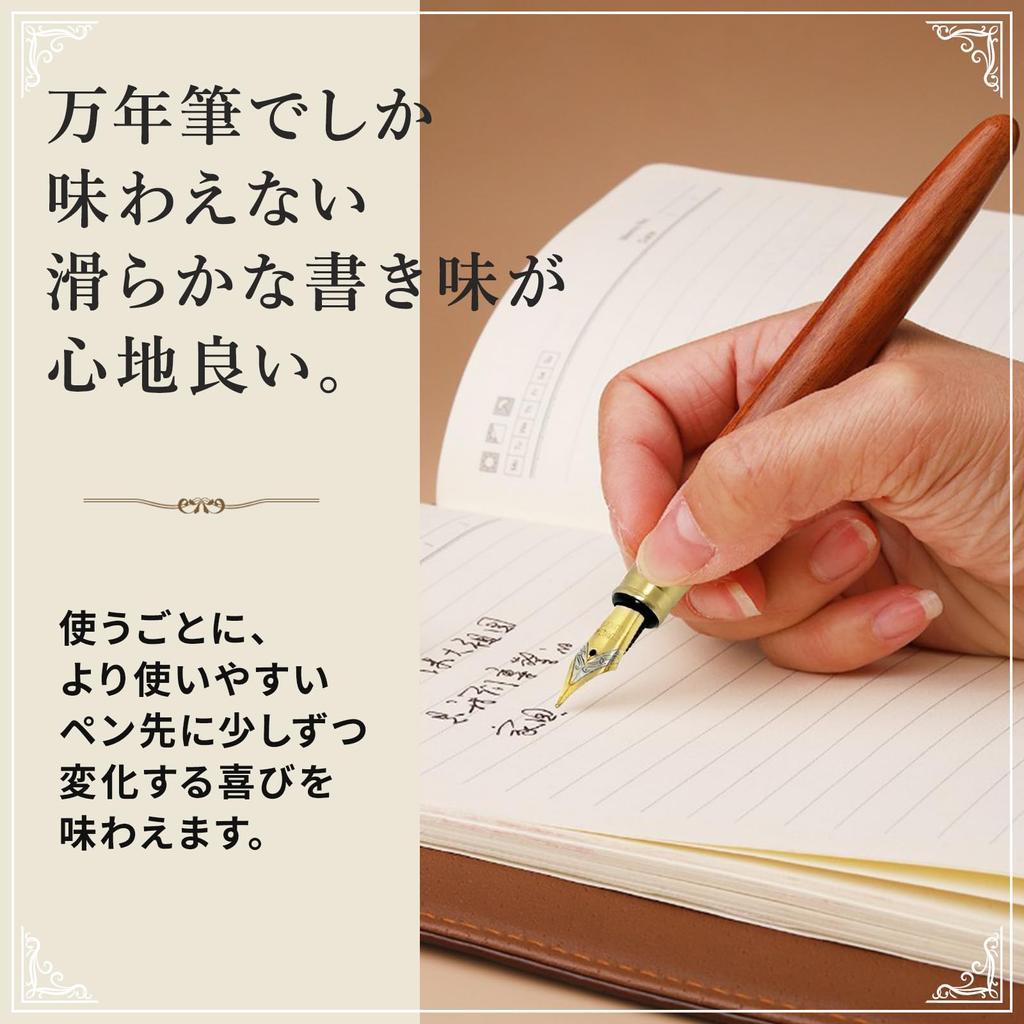 万年筆でしか
味わえない
滑らかな書き味が
心地良い。
使うごとに、
より使いやすい
ペン先に少しずつ
変化する喜びを
味わえます。